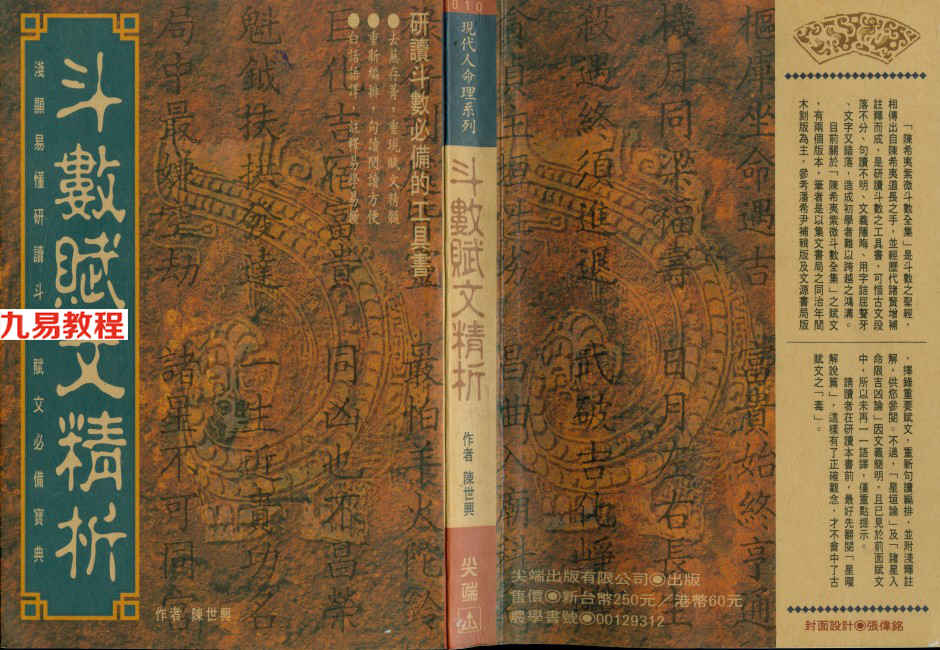 斗數賦文精析
淺顯易懂研讀斗
賦文必備寶典
九易教程
作者 陳世興
研讀斗數必備的工具書
●去蕪存菁,重現賦文精髓
●重新編排,句讀閱讀方便
●白話語譯,註釋易學易懂
010
現代人命理系列
斗數賦文精析
作者 陳世興
尖端
樞庫坐命遇吉 富貴始終亨通
機月同梁福壽 日月左右
殺遇終須進退 武破吉化
昌曲入廟
最怕羊火陀
巨任吉宿富貴 同凶也邪昌榮
魁鉞扶拱發達 一生近貴功名
局守最嫌劫 諸星不可同
尖端出版有限公司◉出版
售價◉新台幣250元/港幣60元
農學書號◉00129312
「陳希夷紫微斗數全集」是斗數之聖經,
相傳出自陳希夷道長之手,並經歷代諸賢增補
註釋而成,是研讀斗數之工具書,可惜古文段
落不分、句讀不明、文義隱晦、用字詰屈聱牙
、文字又錯落,造成初學者難以跨越之鴻溝。
目前關於「陳希夷紫微斗數全集」之賦文
,有兩個版本,筆者是以集文書局之同治年間
木刻版為主,參考潘希尹補輯版及文源書局版
,擇錄重要賦文,重新句讀編排,並附淺釋註
解,供您參閱。不過,「星垣論」及「諸星入
命限吉凶論」因文義簡明,且已見於前面賦文
中,所以未再一一語譯,僅重點提示。
請讀者在研讀本書前,最好先翻閱「星曜
解說篇」,這樣有了正確觀念,才不會中了古
賦文之「毒」。
封面設計◉張偉銘